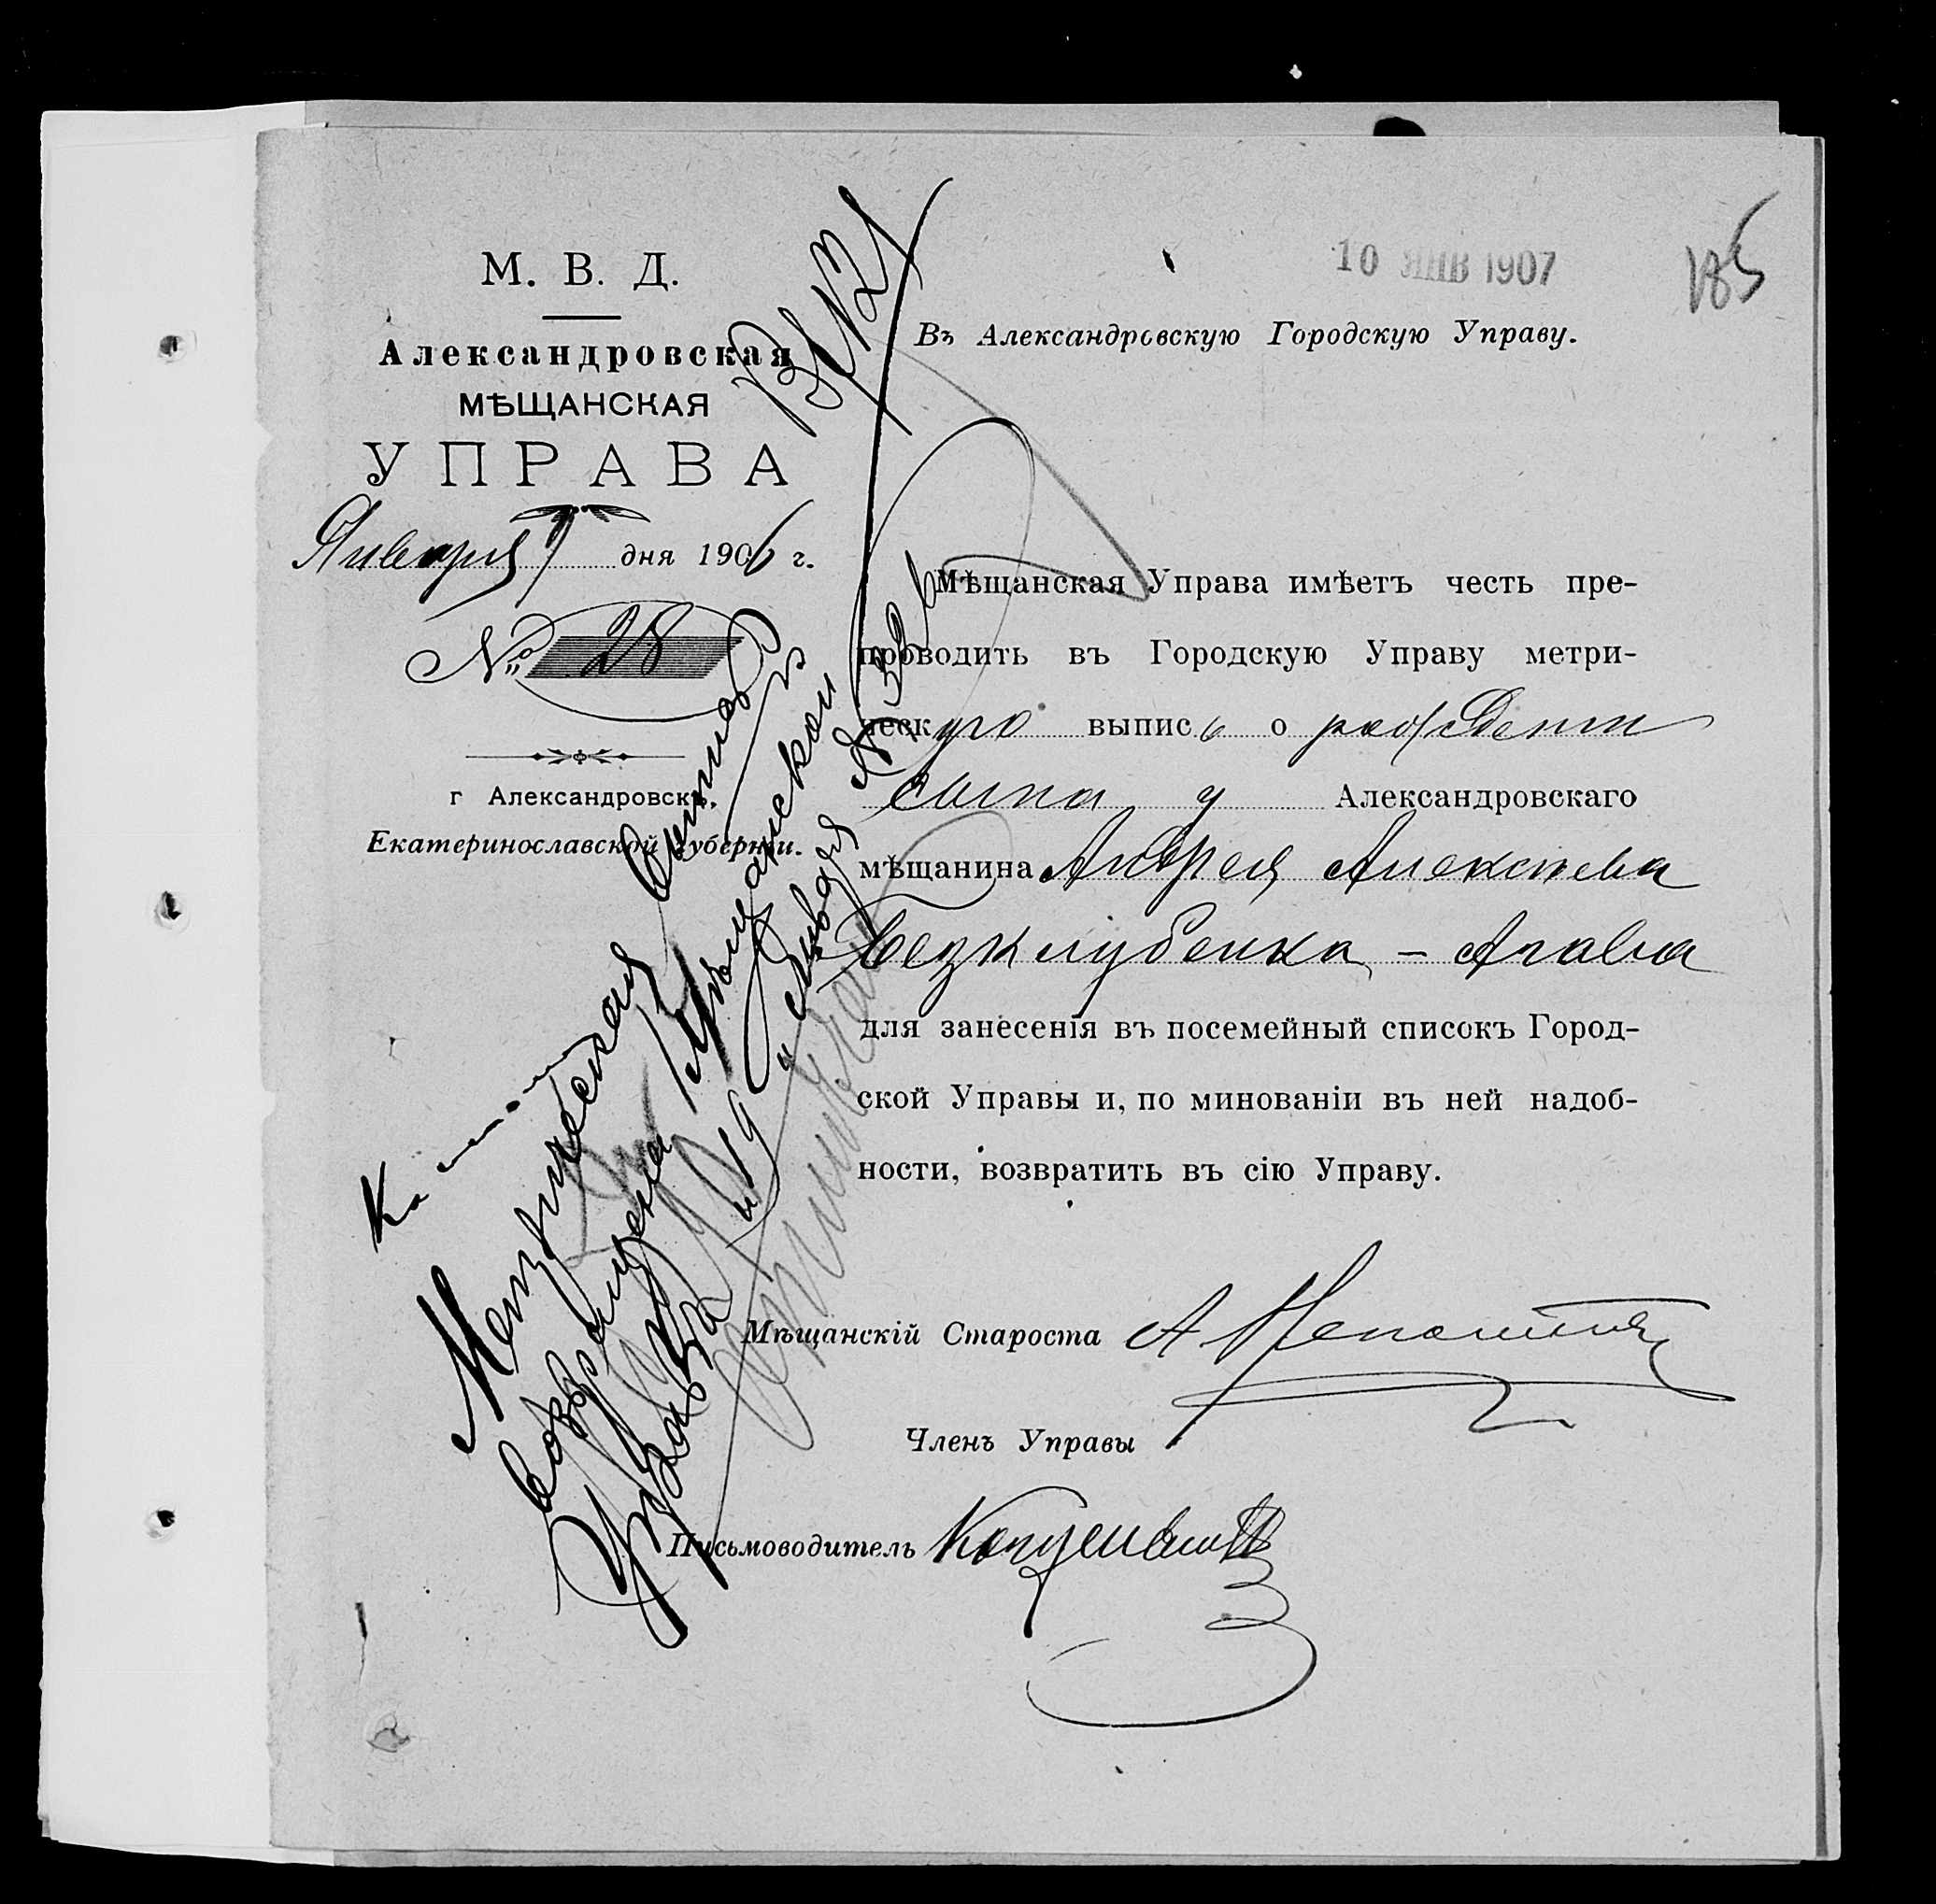 М. В. Д.
Александровская
МѢЩАНСКАЯ
УПРАВА
Января 9 дня 1906 г.
№ 28
г Александровскъ,
Екатеринославской губерніи.
10 ЯНВ 1907
185
Въ Александровскую Городскую Управу.
Мѣщанская Управа имѣетъ честь пре-
проводить въ Городскую Управу метри-
ческую выпись о рожденіи
сына у Александровскаго
мѣщанина Андрея Алексѣева
Безклубенка – Павла
для занесенія въ посемейный списокъ Город-
ской Управы и, по минованіи въ ней надоб-
ности, возвратить въ сію Управу.
Мѣщанскій Староста
Членъ Управы
Письмоводитель
Метрическая выпись
возвращена Мѣщанской
Управѣ 19 Января №